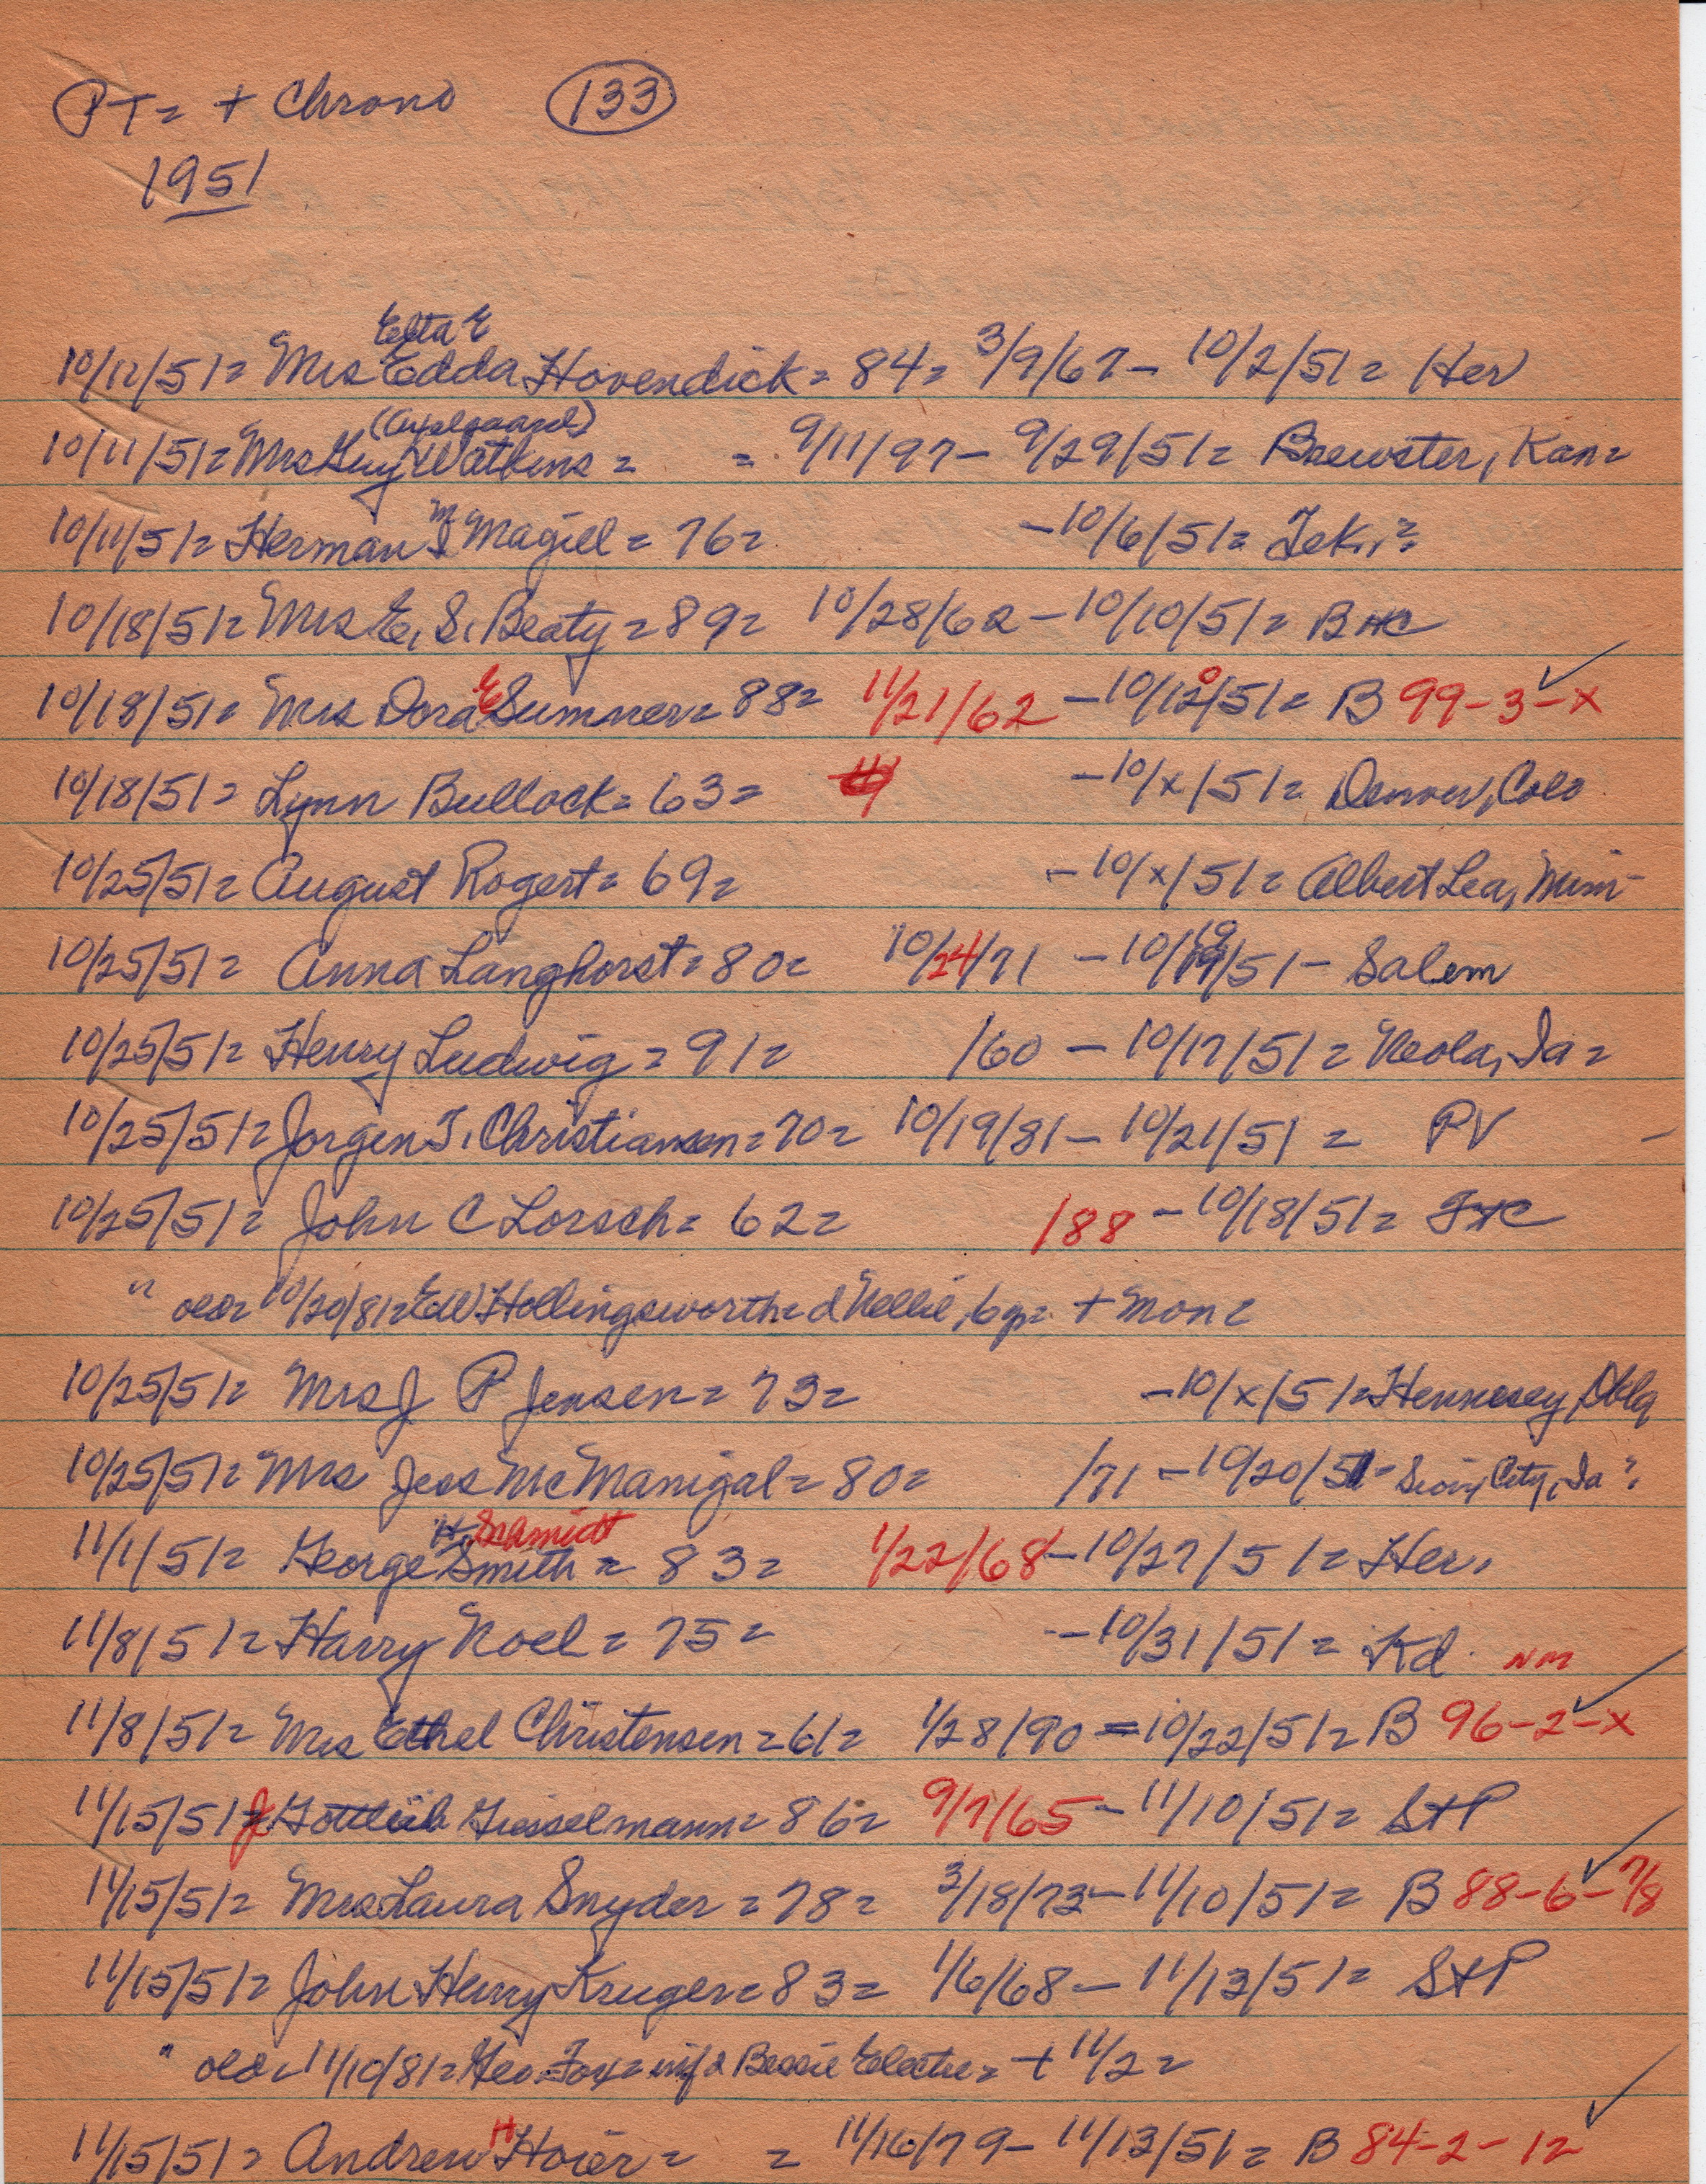 PT= + Chrono (133)
1951
Edta E
10/12/51= Mrs Edda Hovendick= 84= 3/9/67- 10/2/51= Her
(Axelgaard)
10/11/51= Mrs Guy Watkins= = 9/11/97- 9/29/51= Brewster, Kan=
10/11/51= Herman M Magiel= 76= -10/6/51= Tek,,?
10/18/51= Mrs E, S, Beaty=89= 10/28/62-10/10/51= BHC
10/18/51= Mrs Dora E Sumner= 88= 11/21/62 -10/10/51= B 99-3-x
10/18/51= Lynn Bullock= 63= -10/x/51= Denver, Colo
10/25/51= August Rogert= 69= -10/x/51= Albert Lea, Minn
10/25/51= Anna Langhorst=80= 10/24/71 -10/19/51- Salem
10/25/51= Henry Ludwig=91= /60 -10/17/51= Neola, Ia=
10/25/51= Jorgen T. Christiansen=70= 10/19/81- 10/21/51= PV -
10/25/51= John C Lorsch= 62= /88 -10/18/51= FHC
" old= 10/20/81= Ed Hollingsworth= d Nellie, 6 y= + Mon=
10/25/51= Mrs J P Jensen= 73= -10/x/51= Hennesey, Okla
10/25/51= Mrs Jess McManigal=80= /71 -10/20/51- Sioux City, Ia?
H, Schmidt
11/1/51= George Smith= 83= 1/22/68-10/27/51= Her,
11/8/51= Harry Noel= 75= -10/31/51= Kd NM
11/8/51= Mrs Ethel Christensen=61= 1/28/90=10/22/51= B 96-2-x
11/15/51= J Gottleib Giesselmann=86= 9/7/65-11/10/51= StP
11/15/51= Mrs Laura Snyder=78= 3/18/73-11/10/51= B 88-6-7/8
11/15/51= John Henry Kruger=83= 1/6/68- 11/13/51= StP
" old= 11/10/81= Geo Fox= inf d Bessie Electie= + 11/2=
11/15/51= Andrew H Hoier= = 11/16/79- 11/13/51= B 84-2-12